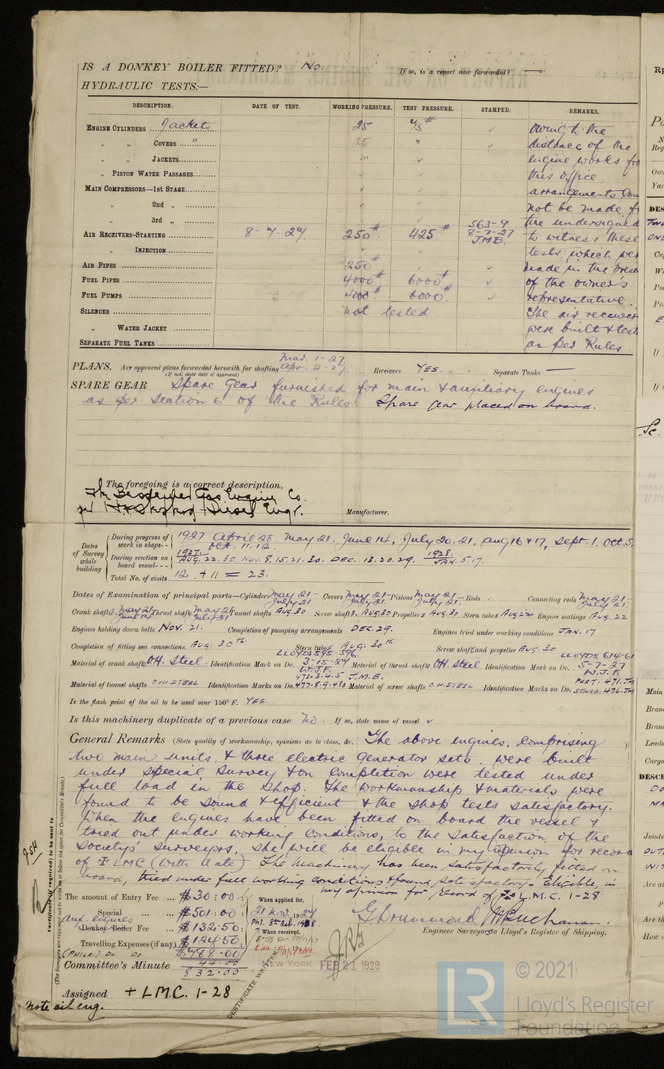 IS A DONKEY BOILER FITTED? No If so, is a report now forwarded? —
HYDRAULIC TESTS:—
DESCRIPTION. DATE OF TEST. WORKING PRESSURE. TEST PRESSURE. STAMPED. REMARKS.
ENGINE CYLINDERS Jackets 25 75# ✓ Owing to the
" " COVERS " 25 " ✓ distance of the
" " JACKETS engine works fro
" PISTON WATER PASSAGES this office
MAIN COMPRESSORS—1st STAGE arrangements
" 2nd " not be made f
" 3rd " the undersigned
AIR RECEIVERS-STARTING 8-7-27 250# 425# 563-9 8-7-27 J.M.B. to witness these
INJECTION tests, which
AIR PIPES 250# made in the pres
FUEL PIPES 4000# 6000# ✓ of the owner's
FUEL PUMPS 4000# 6000# ✓ representative.
SILENCER not tested The air receiver
" WATER JACKET were built & test
SEPARATE FUEL TANKS as per Rules
PLANS. Are approved plans forwarded herewith for shafting Mar. 1-27 Apr. 2-27 Receivers YES. Separate Tanks —
(If not, state date of approval)
SPARE GEAR Spare Gear furnished for main & auxiliary engines
as per Section 6 of the Rules. Spare gear placed on board.
The foregoing is a correct description,
The Bessemer Gas Engine Co.
Manufacturer.
Dates of Survey while building
During progress of work in shops-- 1927 April 28, May 21, June 14, July 20. 21, Aug 16 & 17, Sept. 1. Oct. 5,
Oct. 11. 12.
During erection on board vessel--- 1927 Aug. 22. 30. Nov. 8. 15. 21. 30. Dec. 13. 20. 29. 1928 Jan. 5. 17.
Total No. of visits 12 + 11 = 23.
Dates of Examination of principal parts—Cylinders May 21- July 21 Covers May 21- July 21 Pistons May 21- July 21 Rods Connecting rods May 21- July 21.
Crank shaft Thrust shaft Tunnel shafts Aug 30 Screw shaft Aug 30 Propeller Aug 30 Stern tube Aug 22 Engine seatings Aug. 22
Engines holding down bolts Nov. 21. Completion of pumping arrangements Dec. 29. Engines tried under working conditions Jan. 17
Completion of fitting sea connections Aug. 30th Stern tube Aug. 30th Screw shaft and propeller Aug 30
Material of crank shaft O.H. Steel. Identification Mark on Do. LLOYDS 3-15-27 W.J.F. Material of thrust shaft O.H. Steel Identification Mark on Do. LLOYDS 5-7-27 W.J.F.
Material of tunnel shafts O.H. STEEL Identification Marks on Do. 477-8-9-480 Material of screw shafts O.H. STEEL Identification Marks on Do.
Is the flash point of the oil to be used over 150° F. YES.
Is this machinery duplicate of a previous case No. If so, state name of vessel ✓
General Remarks (State quality of workmanship, opinions as to class, &c. The above engines, comprising
two main units, & three electric generator sets were built
under special survey & on completion were tested under
full load in the shop. The workmanship & materials were
found to be sound & efficient & the shop tests satisfactory.
When the engines have been fitted on board the vessel &
tried out under working conditions, to the satisfaction of the
Society's Surveyors, she will be eligible in my opinion for record
of + LMC (with date). The machinery has been satisfactorily fitted on
board, tried under full working conditions & found satisfactory. Eligible, in
my opinion for record of + L.M.C. 1-28
The amount of Entry Fee ... $30.00 When applied for,
Special ... $501.00
aux engines
Donkey Boiler Fee ... $132.50 When received,
Travelling Expenses (if any)
Engine Surveyor to Lloyd's Register of Shipping.
Committee's Minute New York FEB 21 1928
Assigned + L.M.C. 1-28
note oil eng.
Certificate (if required) to be sent to
© 2021
LR Lloyd's Register
Foundation